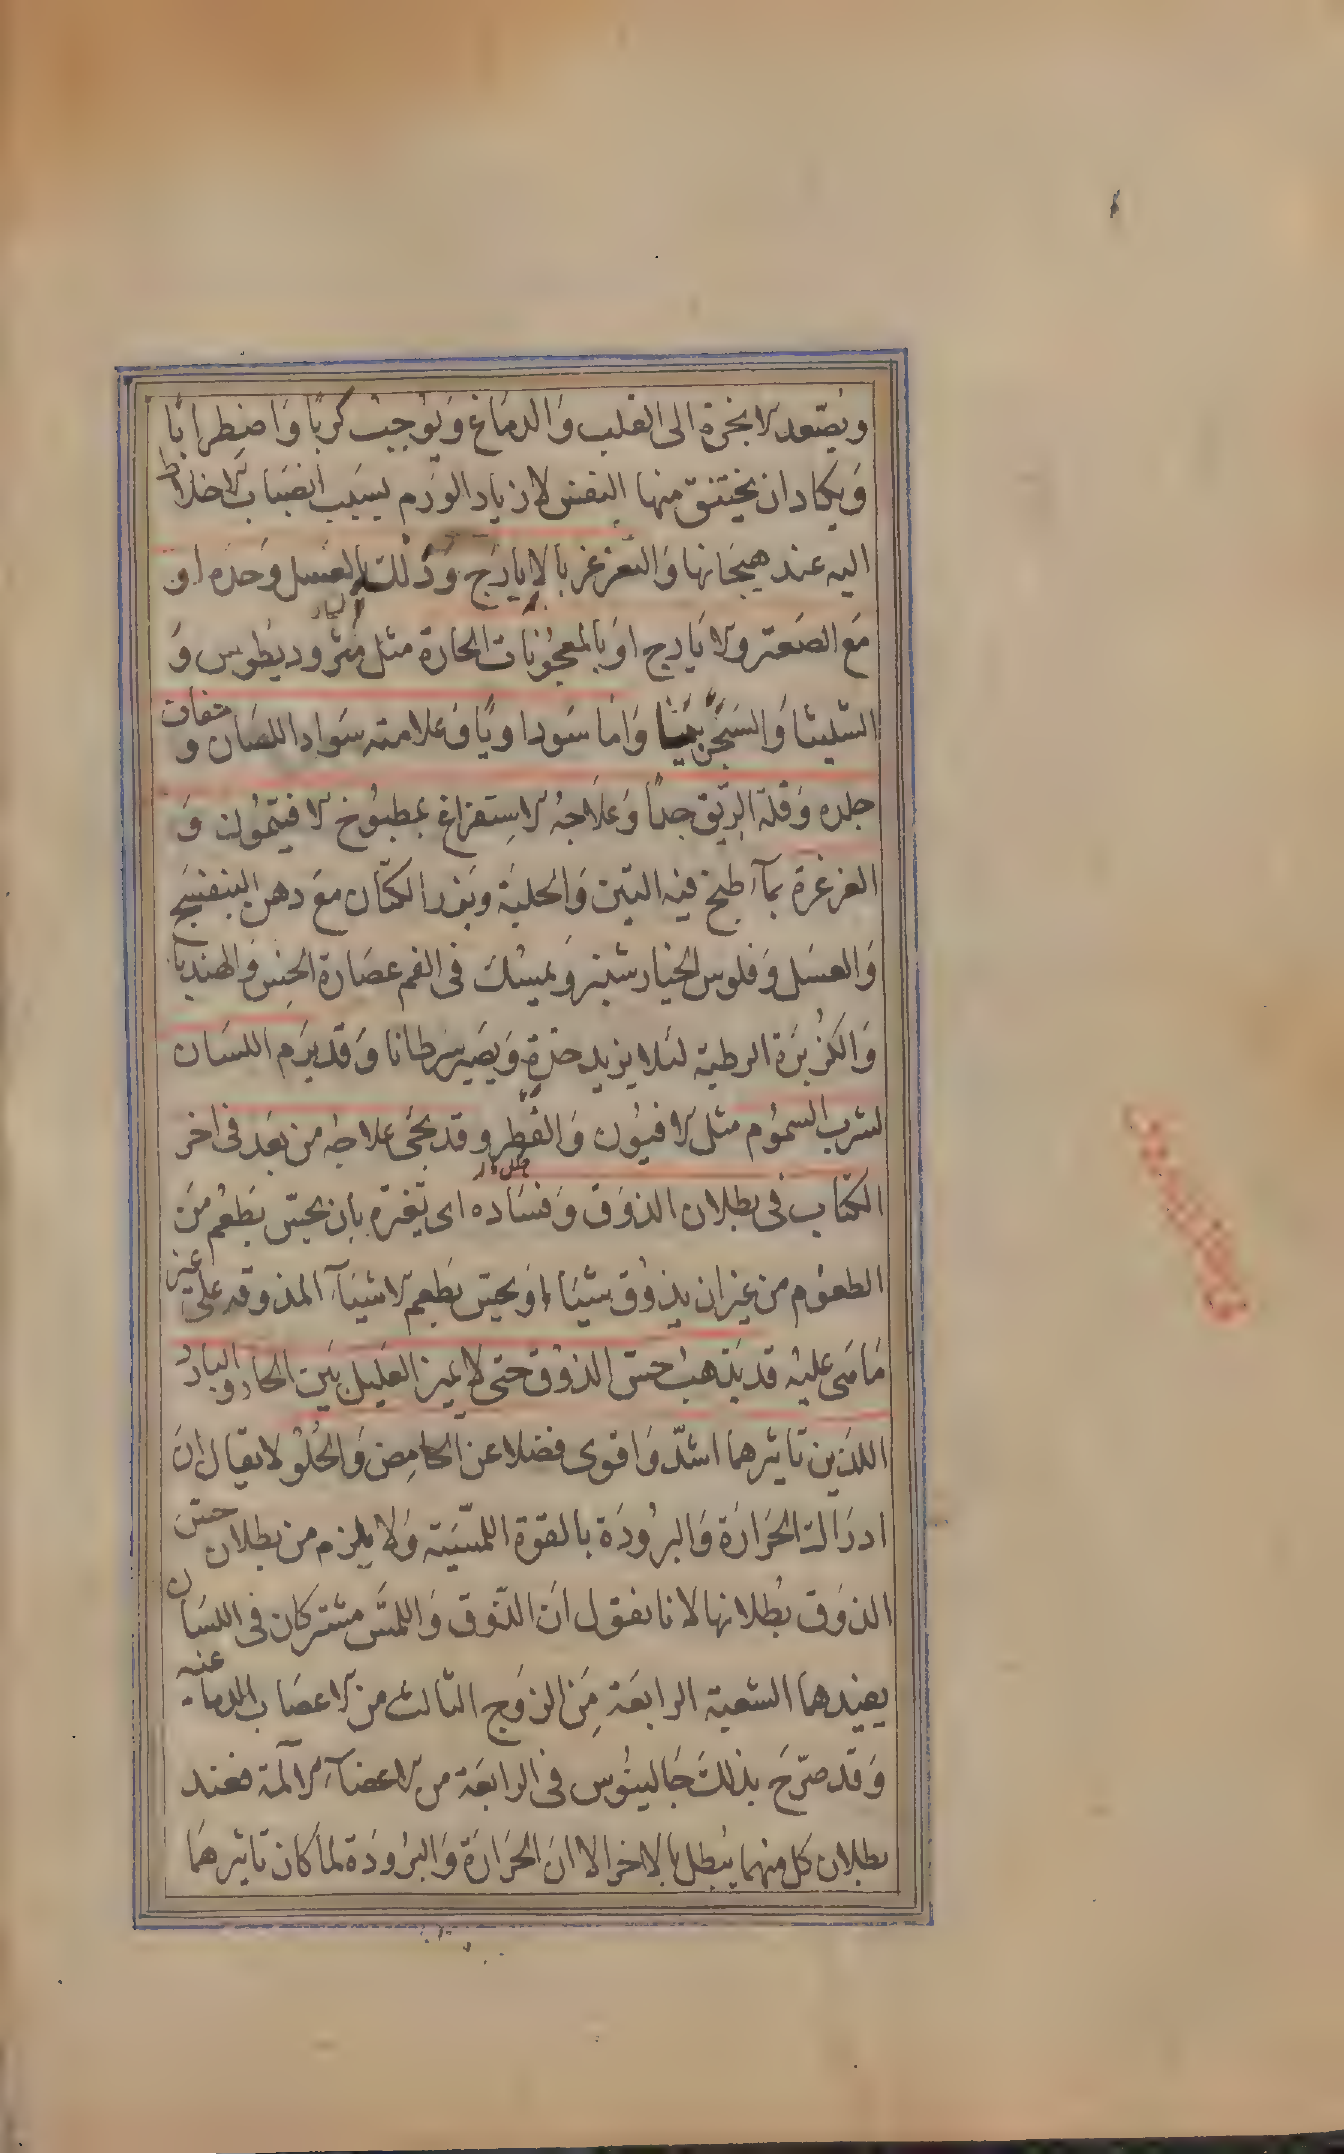 ويصعد الابخرة الى القلب والدماغ ويوجب كربا واضطرابا
ويكاد ان يختنق منها النفس لازدياد الورم بسبب انصباب الاخلاط
اليه عند هيجانها والتغرغر بالايارج وذلك بالعسل وحده او
مع الصعتر والايارج او بالمعجونات الحارة مثل مثروديطوس و
الشليثا والسنجرنيا واما سوداويا فعلامته سواد اللسان وجفاف
جلده وقلة الريق جدا وعلاجه الاستفراغ بمطبوخ الافيتمون و
الغرغرة بماء طبخ فيه التين والحلبة وبزر الكتان مع دهن البنفسج
والعسل وفلوس الخيارشنبر ويمسك في الفم عصارة الخس والهندبا
والكزبرة الرطبة لئلا يزيد حدة ويصير سرطانا وقد يرم اللسان
لشرب السموم مثل الافيون والفطر وقد يجئ علاجه من بعد في اخر
الكتاب في بطلان الذوق وفساده اى تغيره بان يحس بطعم من
الطعوم من غير ان يذوق شيئا او يحس بطعم الاشياء المذوقة على غير
ما هى عليه قد يذهب حس الذوق حتى لا يميز العليل بين الحار والبارد
اللذين تاثيرهما اشد واقوى فضلا عن الحامض والحلو لا يقال ان
ادراك الحرارة والبرودة بالقوة اللمسية ولا يلزم من بطلان حس
الذوق بطلانها لانا نقول ان الذوق واللمس مشتركان في اللسان
يفيدهما الشعبة الرابعة من الزوج الثالث من الاعصاب الدماغية
وقد صرح بذلك جالينوس في الرابعة من الاعضاء الآلمة فعند
بطلان كل منهما يبطل بالاخر الا ان الحرارة والبرودة لما كان تاثيرهما